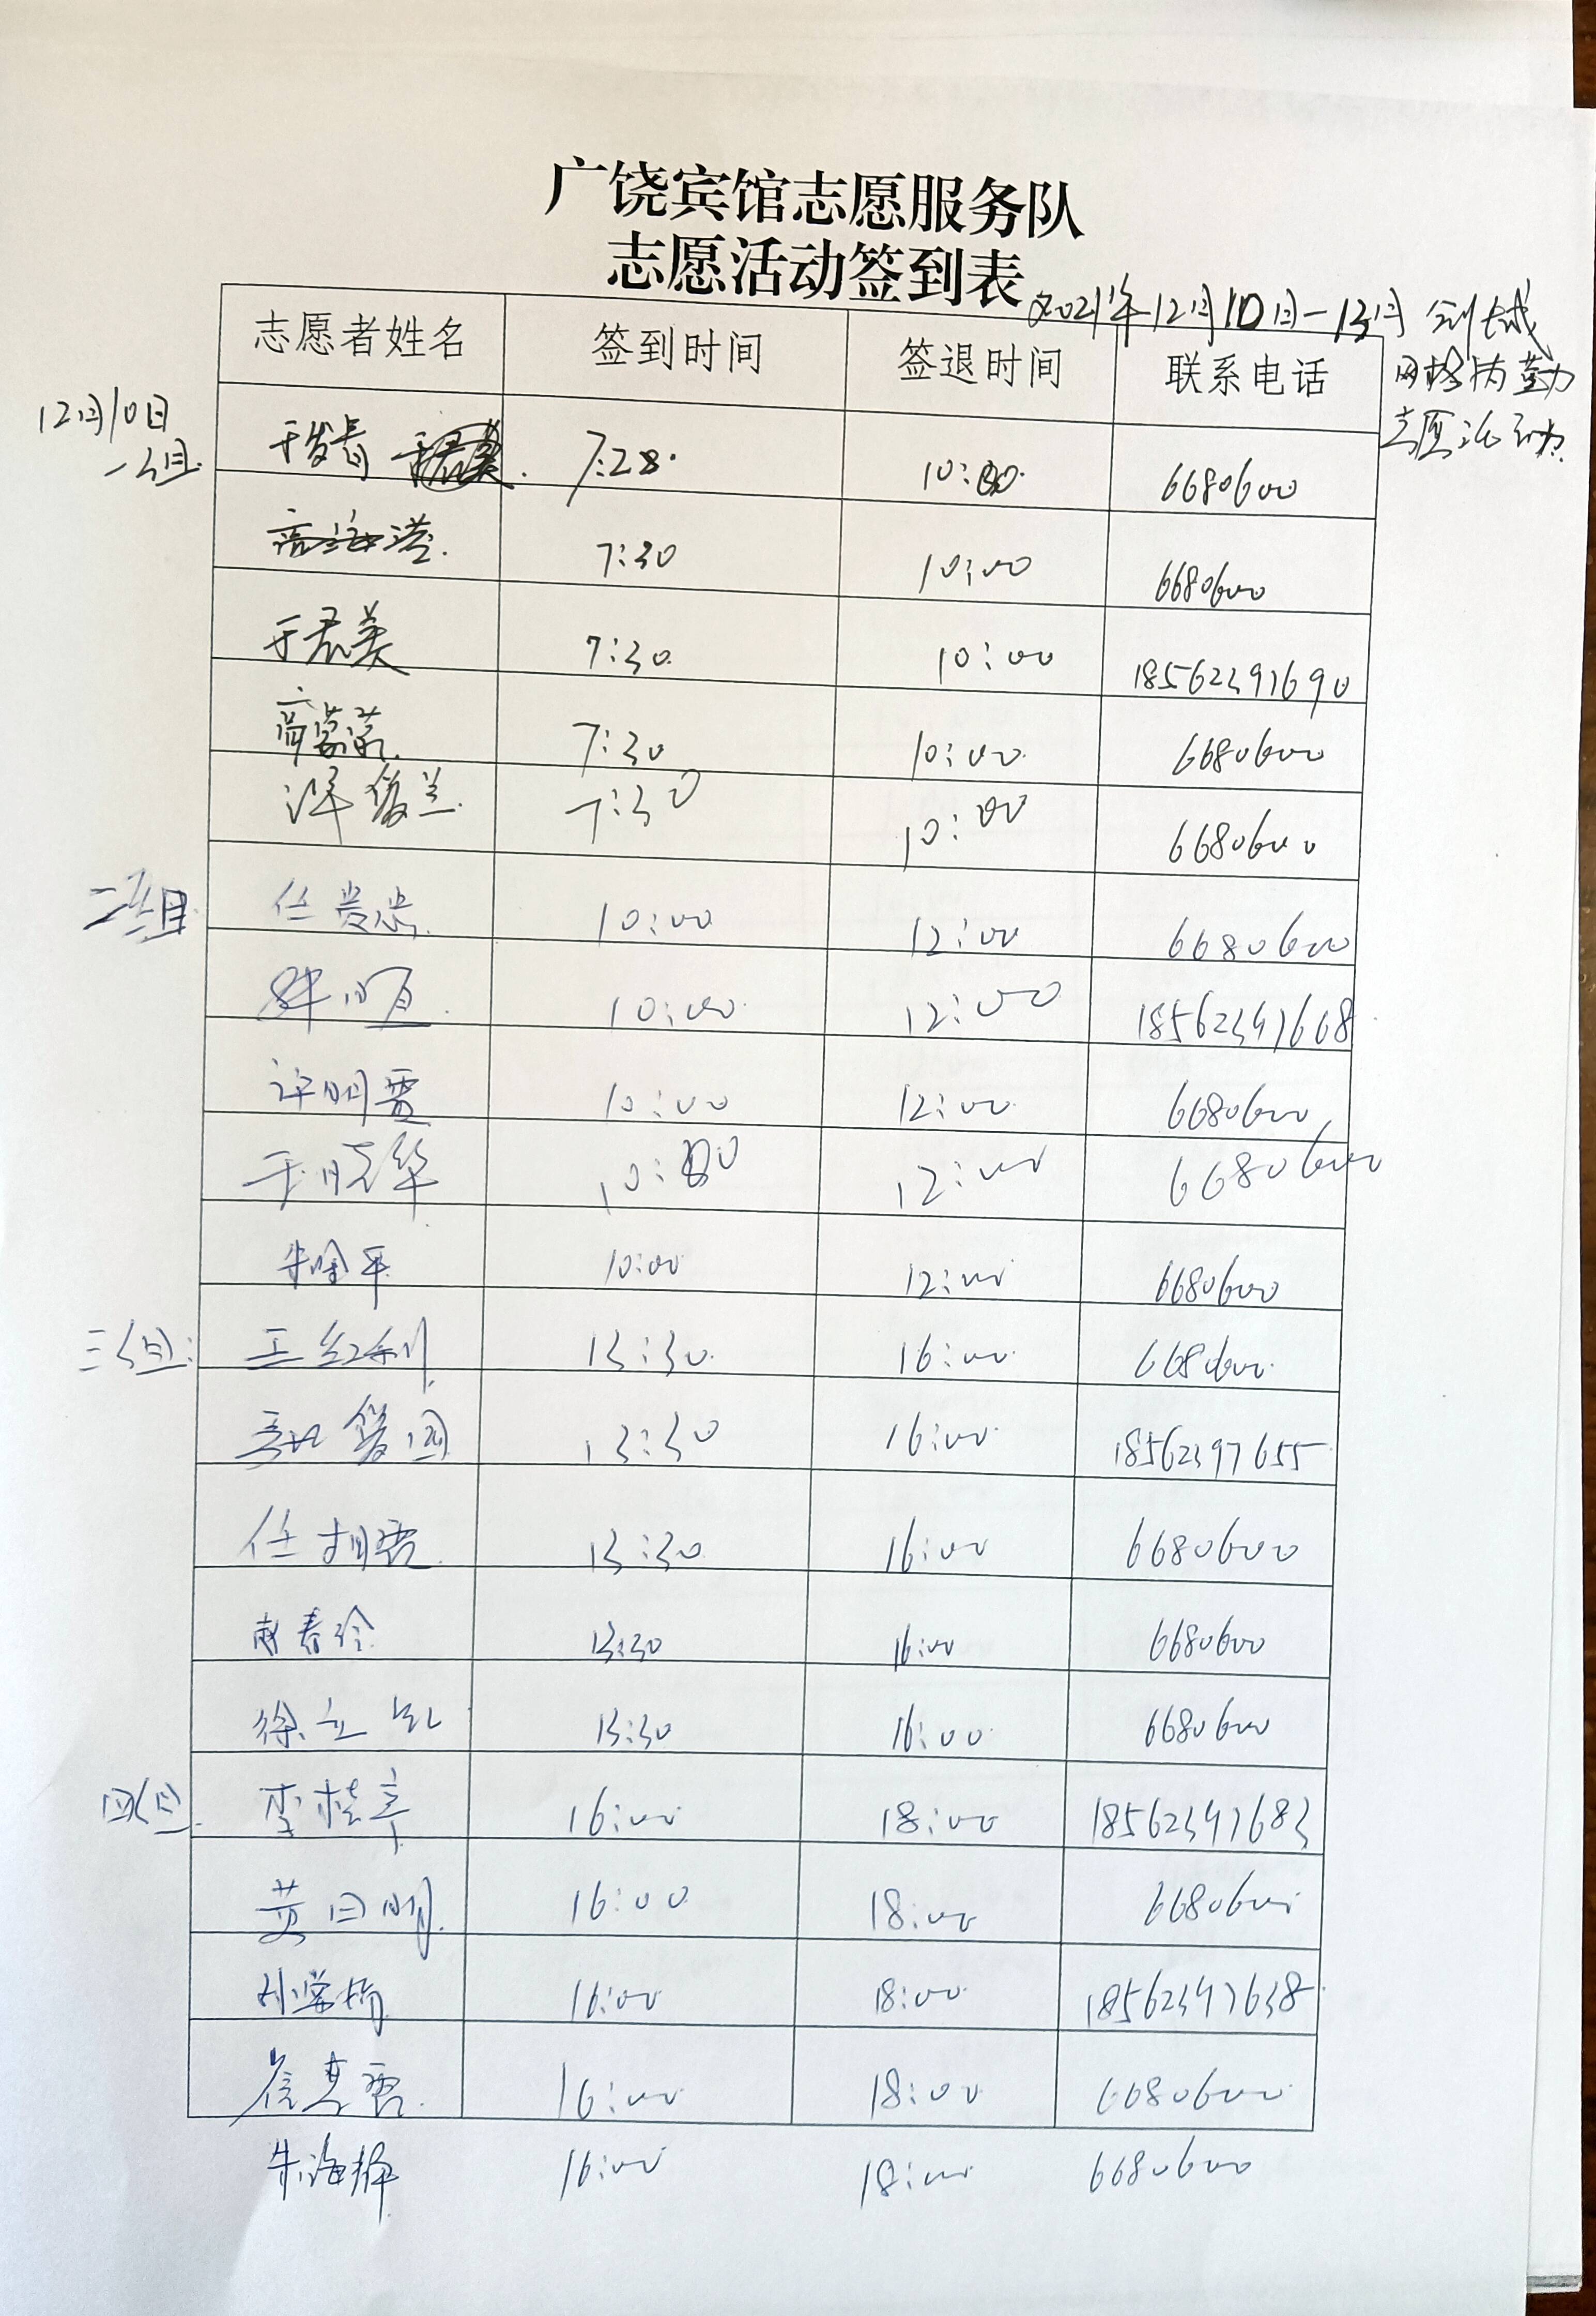 广饶宾馆志愿服务队
志愿活动签到表
2021年12月10日-13日 到
网格 执勤
志愿活动
志愿者姓名 签到时间 签退时间 联系电话
12月10日
一组 7:28 10:00 6680600
7:30 10:00 6680600
于君美 7:30 10:00 18562397690
高蒙蒙 7:30 10:00 6680600
7:30 10:00 6680600
二组 任贵忠 10:00 12:00 6680600
10:00 12:00 18562397668
许明霞 10:00 12:00 6680600
于晓华 10:00 12:00 6680600
朱金平 10:00 12:00 6680600
三组: 王红利 13:30 16:00 6680600
13:30 16:00 18562397655
任相君 13:30 16:00 6680600
春玲 13:30 16:00 6680600
徐立 13:30 16:00 6680600
四组 李桂章 16:00 18:00 18562397683
黄日明 16:00 18:00 6680600
16:00 18:00 18562397638
16:00 18:00 6680600
朱海静 16:00 18:00 6680600